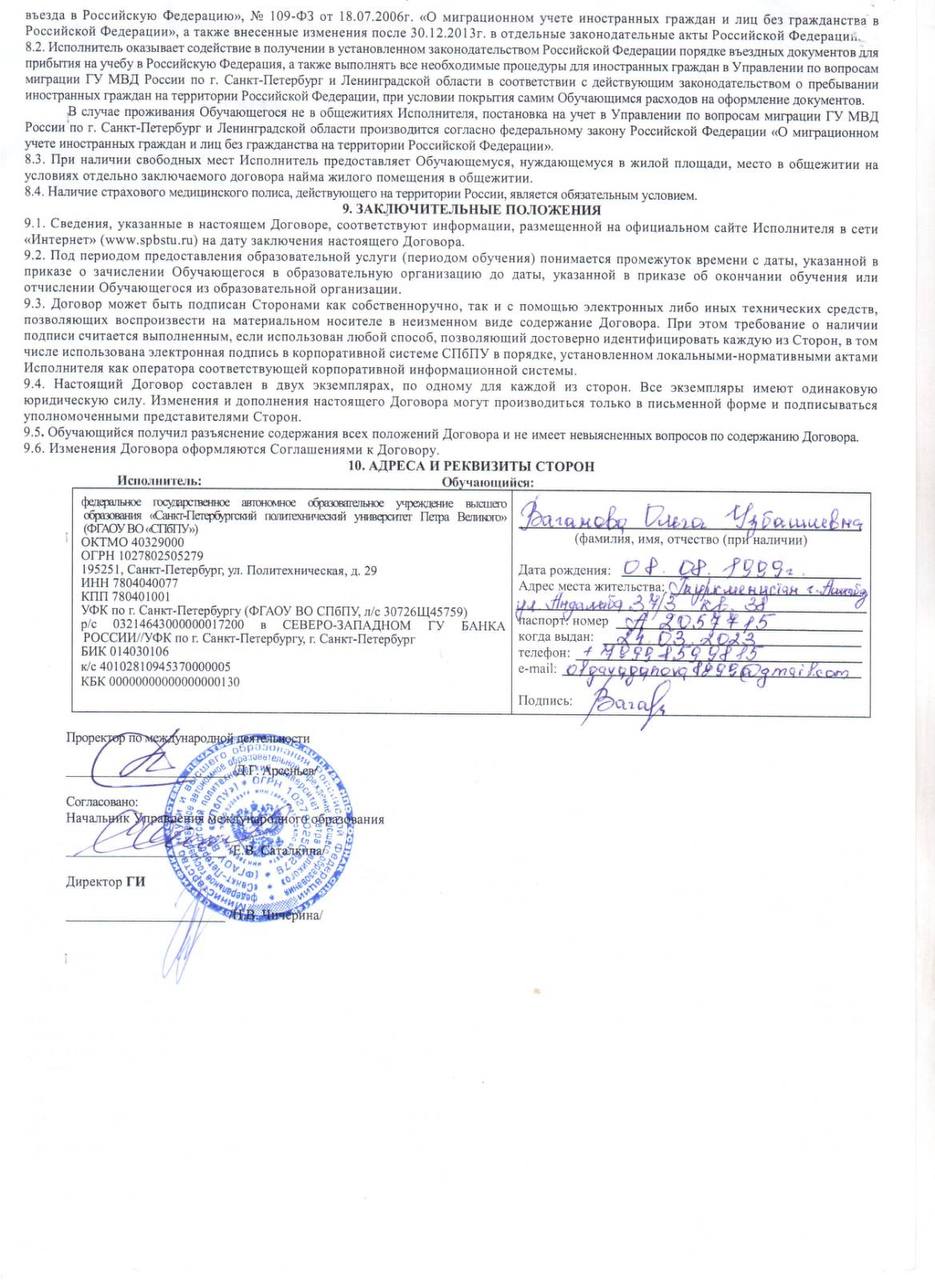 въезда в Российскую Федерацию», № 109-ФЗ от 18.07.2006г. «О миграционном учете иностранных граждан и лиц без гражданства в
Российской Федерации», а также внесенные изменения после 30.12.2013г. в отдельные законодательные акты Российской Федерации.
8.2. Исполнитель оказывает содействие в получении в установленном законодательством Российской Федерации порядке въездных документов для
прибытия на учебу в Российскую Федерация, а также выполнять все необходимые процедуры для иностранных граждан в Управлении по вопросам
миграции ГУ МВД России по г. Санкт-Петербург и Ленинградской области в соответствии с действующим законодательством о пребывании
иностранных граждан на территории Российской Федерации, при условии покрытия самим Обучающимся расходов на оформление документов.
В случае проживания Обучающегося не в общежитиях Исполнителя, постановка на учет в Управлении по вопросам миграции ГУ МВД
России по г. Санкт-Петербург и Ленинградской области производится согласно федеральному закону Российской Федерации «О миграционном
учете иностранных граждан и лиц без гражданства на территории Российской Федерации».
8.3. При наличии свободных мест Исполнитель предоставляет Обучающемуся, нуждающемуся в жилой площади, место в общежитии на
условиях отдельно заключаемого договора найма жилого помещения в общежитии.
8.4. Наличие страхового медицинского полиса, действующего на территории России, является обязательным условием.
9. ЗАКЛЮЧИТЕЛЬНЫЕ ПОЛОЖЕНИЯ
9.1. Сведения, указанные в настоящем Договоре, соответствуют информации, размещенной на официальном сайте Исполнителя в сети
«Интернет» (www.spbstu.ru) на дату заключения настоящего Договора.
9.2. Под периодом предоставления образовательной услуги (периодом обучения) понимается промежуток времени с даты, указанной в
приказе о зачислении Обучающегося в образовательную организацию до даты, указанной в приказе об окончании обучения или
отчислении Обучающегося из образовательной организации.
9.3. Договор может быть подписан Сторонами как собственноручно, так и с помощью электронных либо иных технических средств,
позволяющих воспроизвести на материальном носителе в неизменном виде содержание Договора. При этом требование о наличии
подписи считается выполненным, если использован любой способ, позволяющий достоверно идентифицировать каждую из Сторон, в том
числе использована электронная подпись в корпоративной системе СПбПУ в порядке, установленном локальными-нормативными актами
Исполнителя как оператора соответствующей корпоративной информационной системы.
9.4. Настоящий Договор составлен в двух экземплярах, по одному для каждой из сторон. Все экземпляры имеют одинаковую
юридическую силу. Изменения и дополнения настоящего Договора могут производиться только в письменной форме и подписываться
уполномоченными представителями Сторон.
9.5. Обучающийся получил разъяснение содержания всех положений Договора и не имеет невыясненных вопросов по содержанию Договора.
9.6. Изменения Договора оформляются Соглашениями к Договору.
10. АДРЕСА И РЕКВИЗИТЫ СТОРОН
Исполнитель: Обучающийся:
федеральное государственное автономное образовательное учреждение высшего
образования «Санкт-Петербургский политехнический университет Петра Великого»
(ФГАОУ ВО «СПбПУ»)
ОКТМО 40329000
ОГРН 1027802505279
195251, Санкт-Петербург, ул. Политехническая, д. 29
ИНН 7804040077
КПП 780401001
УФК по г. Санкт-Петербургу (ФГАОУ ВО СПБПУ, л/с 30726Щ45759)
р/с 03214643000000017200 в СЕВЕРО-ЗАПАДНОМ ГУ БАНКА
РОССИИ//УФК по г. Санкт-Петербургу, г. Санкт-Петербург
БИК 014030106
к/с 40102810945370000005
КБК 00000000000000000130
Ваганова Олега Узбашиевна
(фамилия, имя, отчество (при наличии)
Дата рождения: 08. 08. 1999г.
Адрес места жительства: Туркменистан г.
ул 37/3 кв. 38
паспорт: номер А 2057715
когда выдан: 24.03.2023
телефон: +79991859
e-mail: @gmail.com
Подпись: Вага
Проректор по международной деятельности
Д.Г. Арсеньев/
Согласовано:
Начальник Управления международного образования
/Е.В. Саталкина/
Директор ГИ
/Н.В. Чичерина/